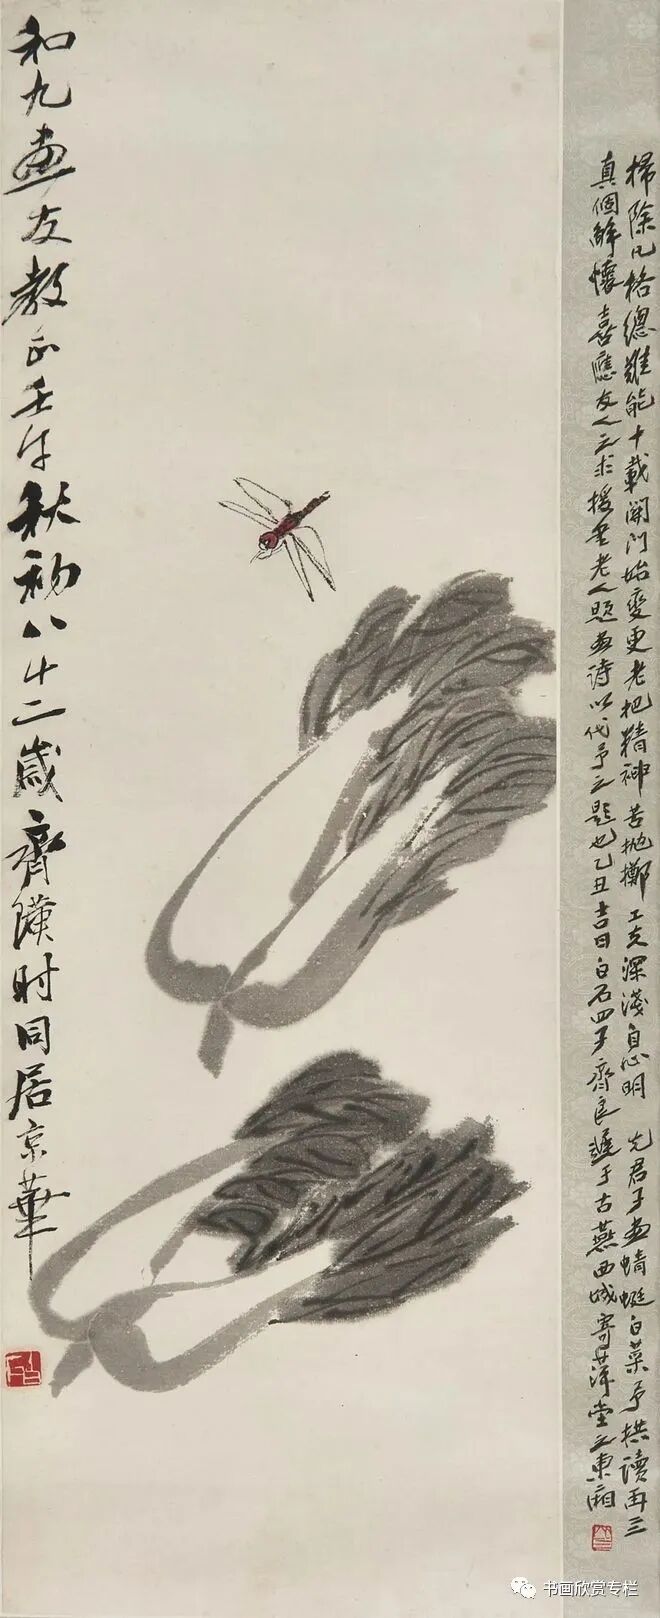 掃除凡格總難能十載關門始變更老把精神苦拋擲工夫深淺自心明 先君子畫蜻蜓白菜予拱讀再三
真個解懷喜應友人之求援吾老人題畫詩以代予之題也乙丑吉日白石四子齊良遲于古燕西城寄萍堂之東廂
和九畫友教正壬午秋初八十二歲齊璜時同居京華
白石
书画欣赏专栏